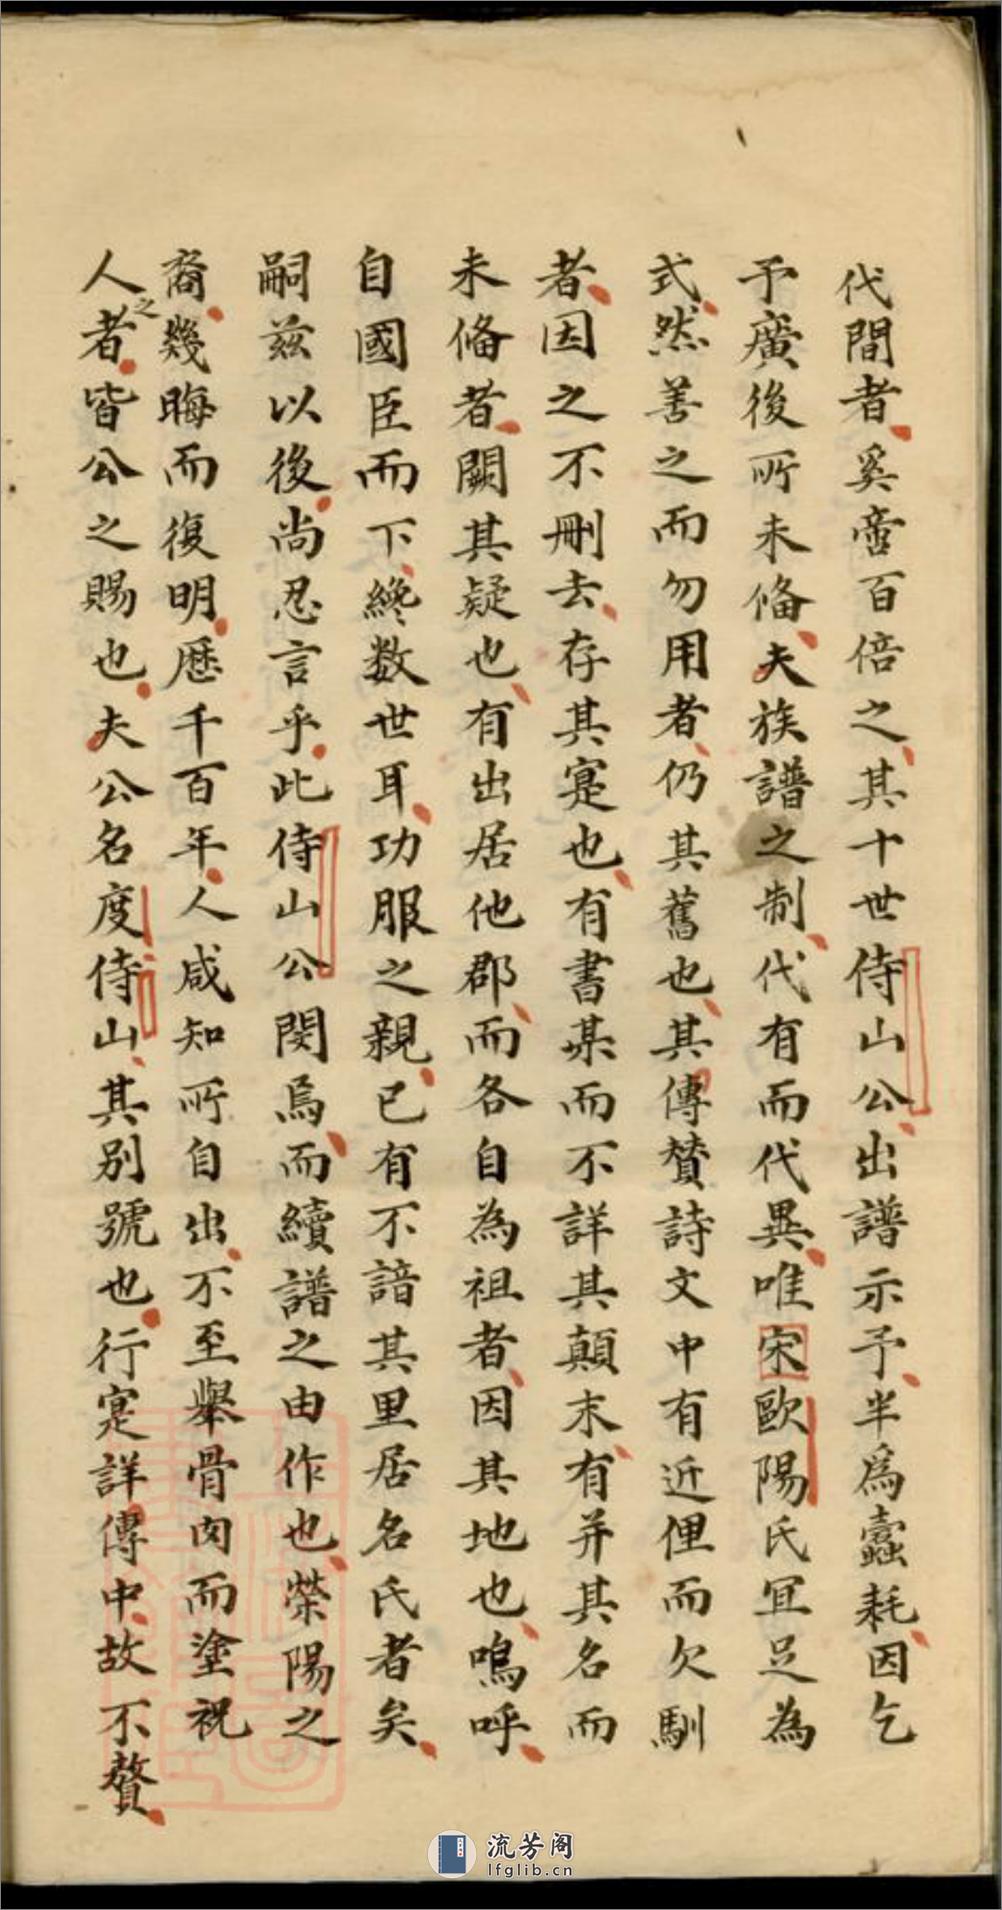 代間者奚啻百倍之其十世侍山公出譜示予半爲蠹耗因乞
予廣後所未俻夫族譜之制代有而代異唯宋歐陽氏冝足為
式然善之而勿用者仍其舊也其傳贊詩文中有近俚而欠馴
者因之不刪去存其寔也有書某而不詳其顛末有并其名而
未俻者闕其疑也有出居他郡而各自為祖者因其地也嗚呼
自國臣而下終数世耳功服之親已有不諳其里居名氏者矣
嗣兹以後尚忍言乎此侍山公閔焉而續譜之由作也荣陽之
裔幾晦而復明歷千百年人咸知所自出不至舉骨肉而塗視
人之者皆公之賜也夫公名度侍山其别號也行寔詳傳中故不贅
流芳阁
lfglib.cn